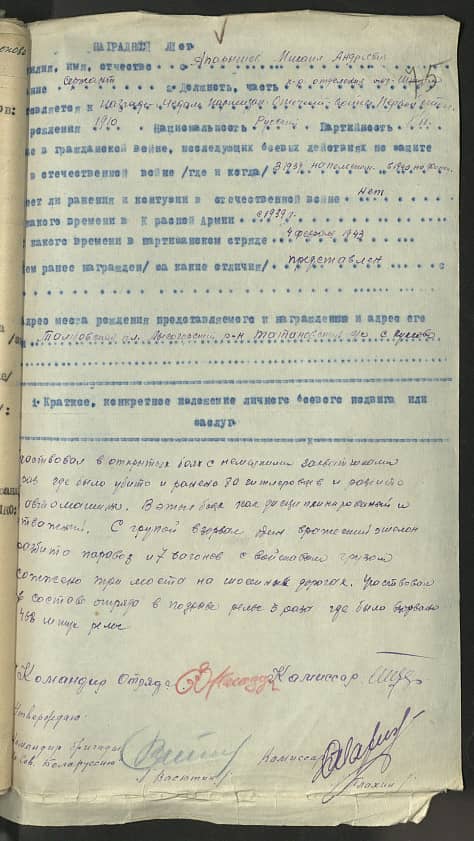 75
НАГРАДНОЙ ЛИСТ
милия, имя, отчество Михаил Андреев
ание Сержант 2. Должность, часть к-р отделения
тавляется к награде Медаль Партизан Отечеств. войны Первой степ.
рождения 1910 Национальность Русский Партийность
ие в гражданской войне, последующих боевых действиях по защите
в отечественной войне /где и когда/ В 1939
еет ли ранения и контузии в отечественной войне нет
какого времени в Красной Армии с 1939 г.
с какого времени в партизанском отряде 4 февраля 1943
ем ранее награжден/ за какие отличия/ представлен
Адрес места рождения представляемого к награждению и адрес его
обл. р-н с.
1. Краткое, конкретное изложение личного боевого подвига или
заслуг
частвовал в открытых боях с немецкими захватчиками
раз где было убито и ранено 80 гитлеровцев и разбито
автомашин. В этих боях как дисциплинированный и
С группой взорвал один вражеский эшелон
разбито паровоз и 7 вагонов с войсковым грузом
сожжено три моста на шосейных дорогах. Участвовал
в составе отряда в подрыве рельс 3 раза где было взорвано
468 штук рельс
Командир Отряда Комиссар
Утверждаю:
Командир бригады Комиссар
Сов. Белоруссию
/Васютин/